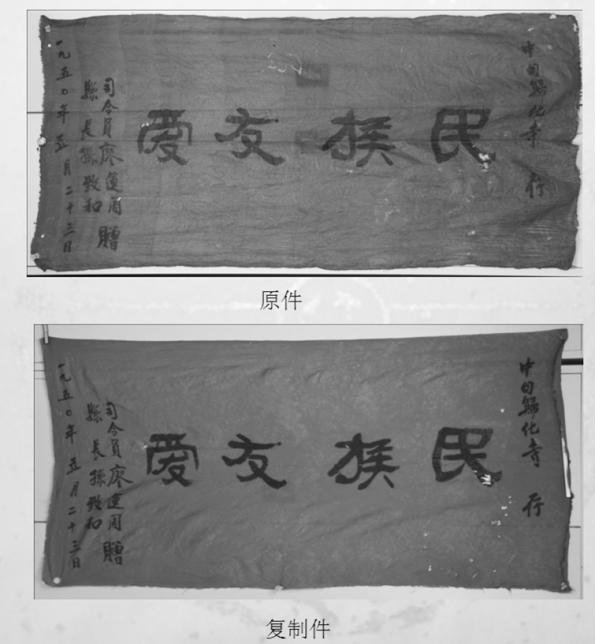 中甸歸化寺 行
民族友爱
司令員廖運周 贈
縣長孫致和
一九五〇年五月二十三日
原件
中甸歸化寺 行
民族友爱
司令員廖運周 贈
縣長孫致和
一九五〇年五月二十三日
复制件